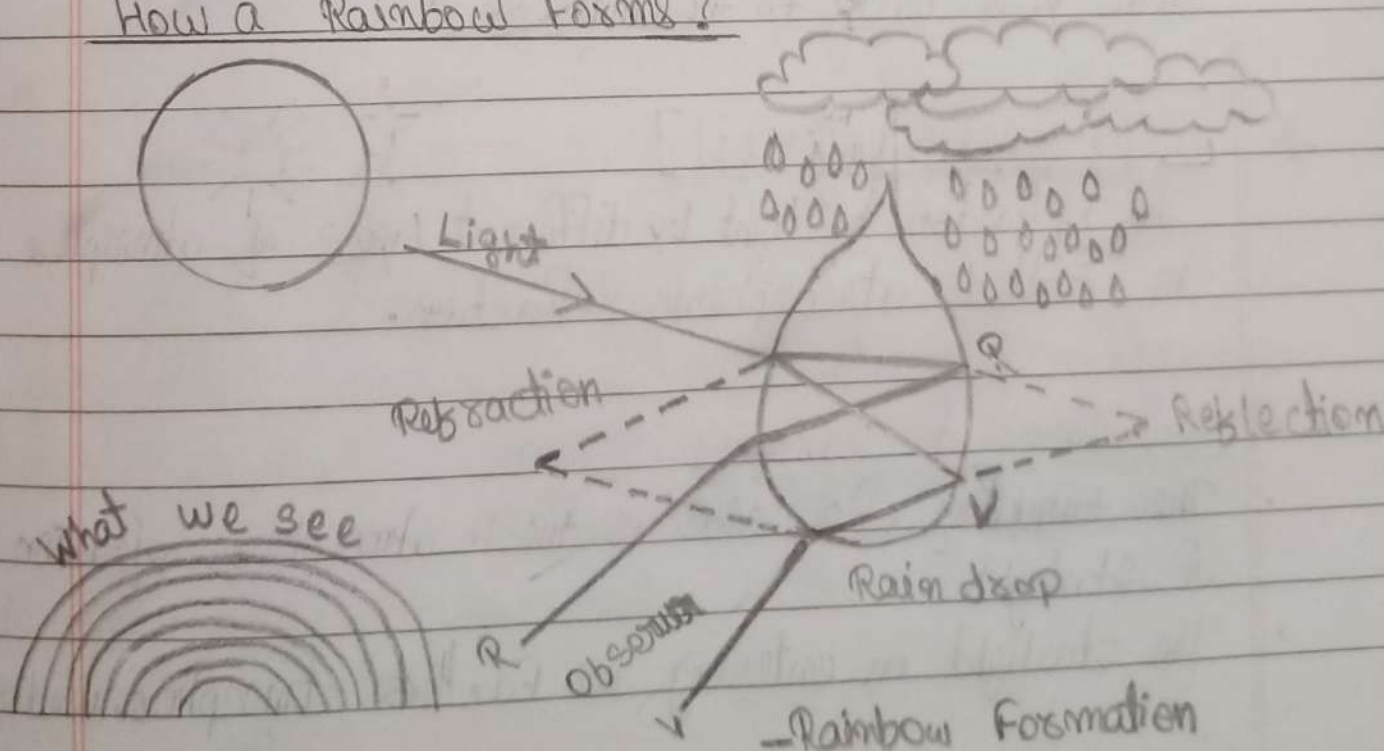 How a Rainbow Forms?
Light
R
Refraction
Reflection
What we see
V
Rain drop
R
V
-Rainbow Formation